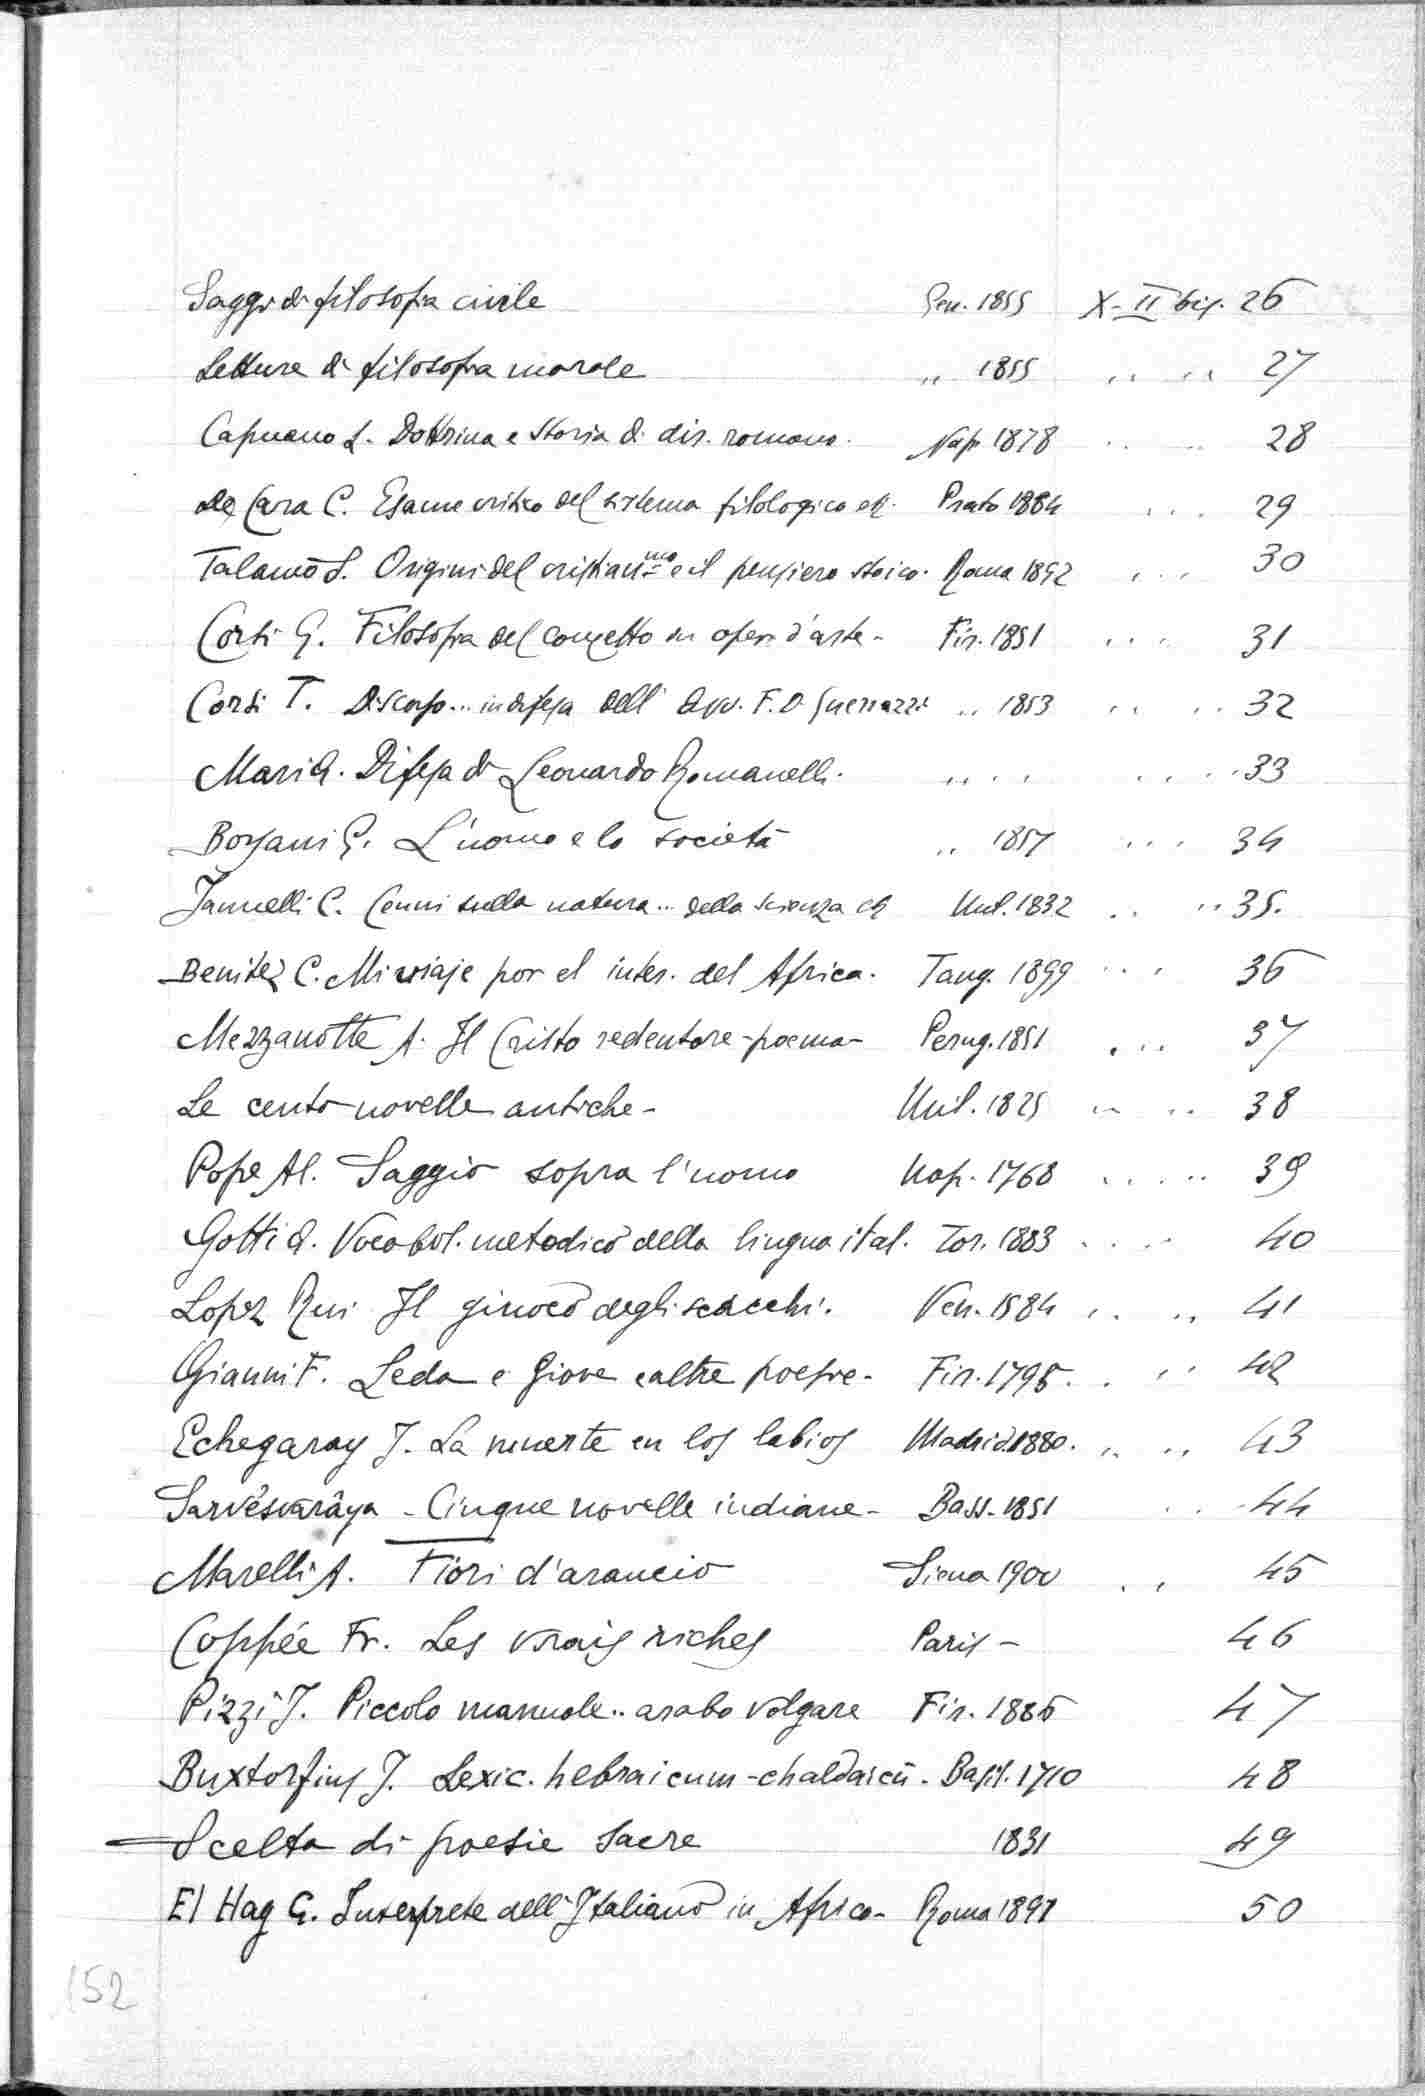 Saggi di filosofia civile Gen. 1855 X-II bis. 26
Letture di filosofia morale „ 1855 „ „ 27
Capuano L. Dottrina e Storia di dir. romano. Nap. 1878 „ „ 28
De Cara C. Esame critico del sistema filologico ecc. Prato 1884 . . . 29
Talamo S. Origini del cristianmo e il pensiero stoico. Roma 1892 . . . 30
Corti G. Filosofia del concetto in opere d'arte - Fir. 1851 . . . 31
Corsi T. Discorso... in difesa dell' Avv. F. D. Guerrazzi „ 1853 „ „ 32
Mari A. Difesa di Leonardo Romanelli. „ „ . . . 33
Borsani G. L'uomo e la società „ 1857 . . . 34
Jannelli C. Cenni sulla natura... della scienza ecc Mil. 1832 „ „ 35.
Benitez C. Mi viaje por el inter. del Africa. Tang. 1899 . . . 36
Mezzanotte A. Il Cristo redentore - poema - Perug. 1851 . . . 37
Le cento novelle antiche - Mil. 1825 „ „ 38
Pope Al. Saggio sopra l'uomo Nap. 1768 . . . „ 39
Gotti A. Vocabol. metodico della lingua ital. Tor. 1883 . . . . 40
Lopez Rui Il giuoco degli scacchi. Ven. 1584 „ „ 41
Gianni F. Leda e Giove e altre poesie - Fir. 1795. „ „ 42
Echegaray J. La muerte en los labios Madrid 1880. „ „ 43
Sarvésvarâya - Cinque novelle indiane - Bass. 1851 . . 44
Marelli A. Fiori d'arancio Siena 1900 „ 45
Coppée Fr. Les vrais riches Paris - 46
Pizzi J. Piccolo manuale .. arabo volgare Fir. 1886 47
Buxtorfius J. Lexic. hebraicum - chaldaicū. Basil. 1710 48
Scelta di poesie sacre 1831 49
El Hag G. Interprete dell'Italiano in Africa - Roma 1891 50
152